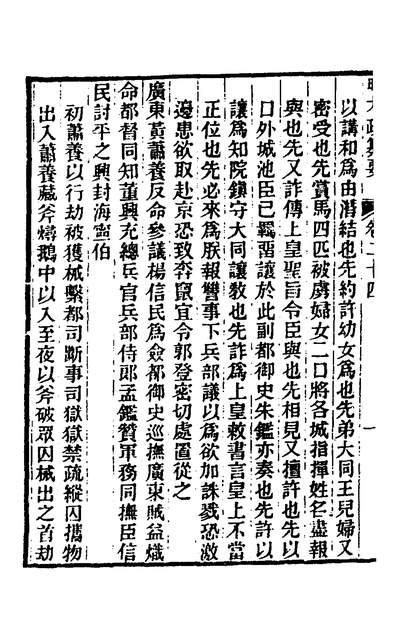 明大政纂要 卷二十四 一
以講和爲由潛結也先約許幼女爲也先弟大同王兒婦又
密受也先賞馬四匹被虜婦女二口將各城指揮姓名盡報
與也先又詐傳上皇聖旨令臣與也先相見又擅許也先以
口外城池臣已羈畱讓於此副都御史朱鑑亦奏也先許以
讓爲知院鎭守大同讓教也先詐爲上皇敕書言皇上不當
正位也先必來爲朕報讐事下兵部議以爲欲加誅戮恐激
邊患欲取赴京恐致奔竄宜令郭登密切處置從之
廣東黃蕭養反命參議楊信民爲僉都御史巡撫廣東賊益熾
命都督同知董興充總兵官兵部侍郎孟鑑贊軍務同撫臣信
民討平之興封海寧伯
初蕭養以行劫被獲械繫都司斷事司獄獄禁疏縱囚攜物
出入蕭養藏斧燖鵝中以入至夜以斧破眾囚械出之首劫